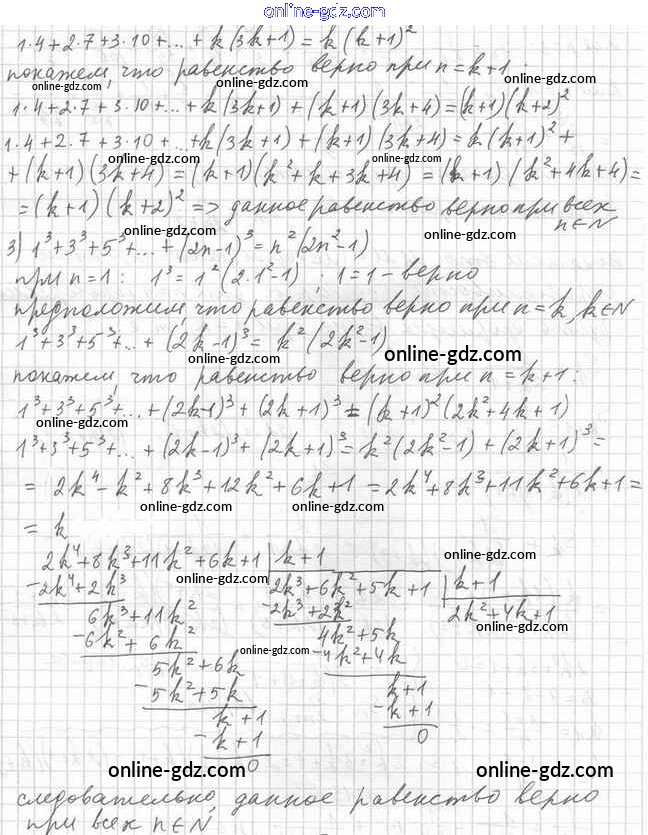 online-gdz.com
1·4+2·7+3·10+...+k(3k+1)=k(k+1)²
покажем, что равенство верно при n=k+1:
online-gdz.com
1·4+2·7+3·10+...+k(3k+1)+(k+1)(3k+4)=(k+1)(k+2)²
online-gdz.com
1·4+2·7+3·10+...+k(3k+1)+(k+1)(3k+4)=k(k+1)²+
online-gdz.com online-gdz.com
+(k+1)(3k+4)=(k+1)(k²+k+3k+4)=(k+1)(k²+4k+4)=
online-gdz.com
=(k+1)(k+2)² => данное равенство верно при всех
n∈N
online-gdz.com online-gdz.com
3) 1³+3³+5³+...+(2n-1)³=n²(2n²-1)
при n=1: 1³=1²(2·1²-1); 1=1 - верно
online-gdz.com
предположим, что равенство верно при n=k, k∈N
1³+3³+5³+...+(2k-1)³=k²(2k²-1)
online-gdz.com online-gdz.com
покажем, что равенство верно при n=k+1:
1³+3³+5³+...+(2k-1)³+(2k+1)³=(k+1)²(2k²+4k+1)
online-gdz.com
1³+3³+5³+...+(2k-1)³+(2k+1)³=k²(2k²-1)+(2k+1)³=
=2k⁴-k²+8k³+12k²+6k+1=2k⁴+8k³+11k²+6k+1=
online-gdz.com online-gdz.com
=k
2k⁴+8k³+11k²+6k+1 k+1
online-gdz.com online-gdz.com
-2k⁴+2k³ 2k³+6k²+5k+1 k+1
6k³+11k² -2k³+2k² 2k²+4k+1
online-gdz.com
-6k²+6k² 4k²+5k
online-gdz.com
5k²+6k -4k²+4k
-5k²+5k k+1
k+1 -k+1
-k+1 0
0
online-gdz.com online-gdz.com
следовательно, данное равенство верно
при всех n∈N